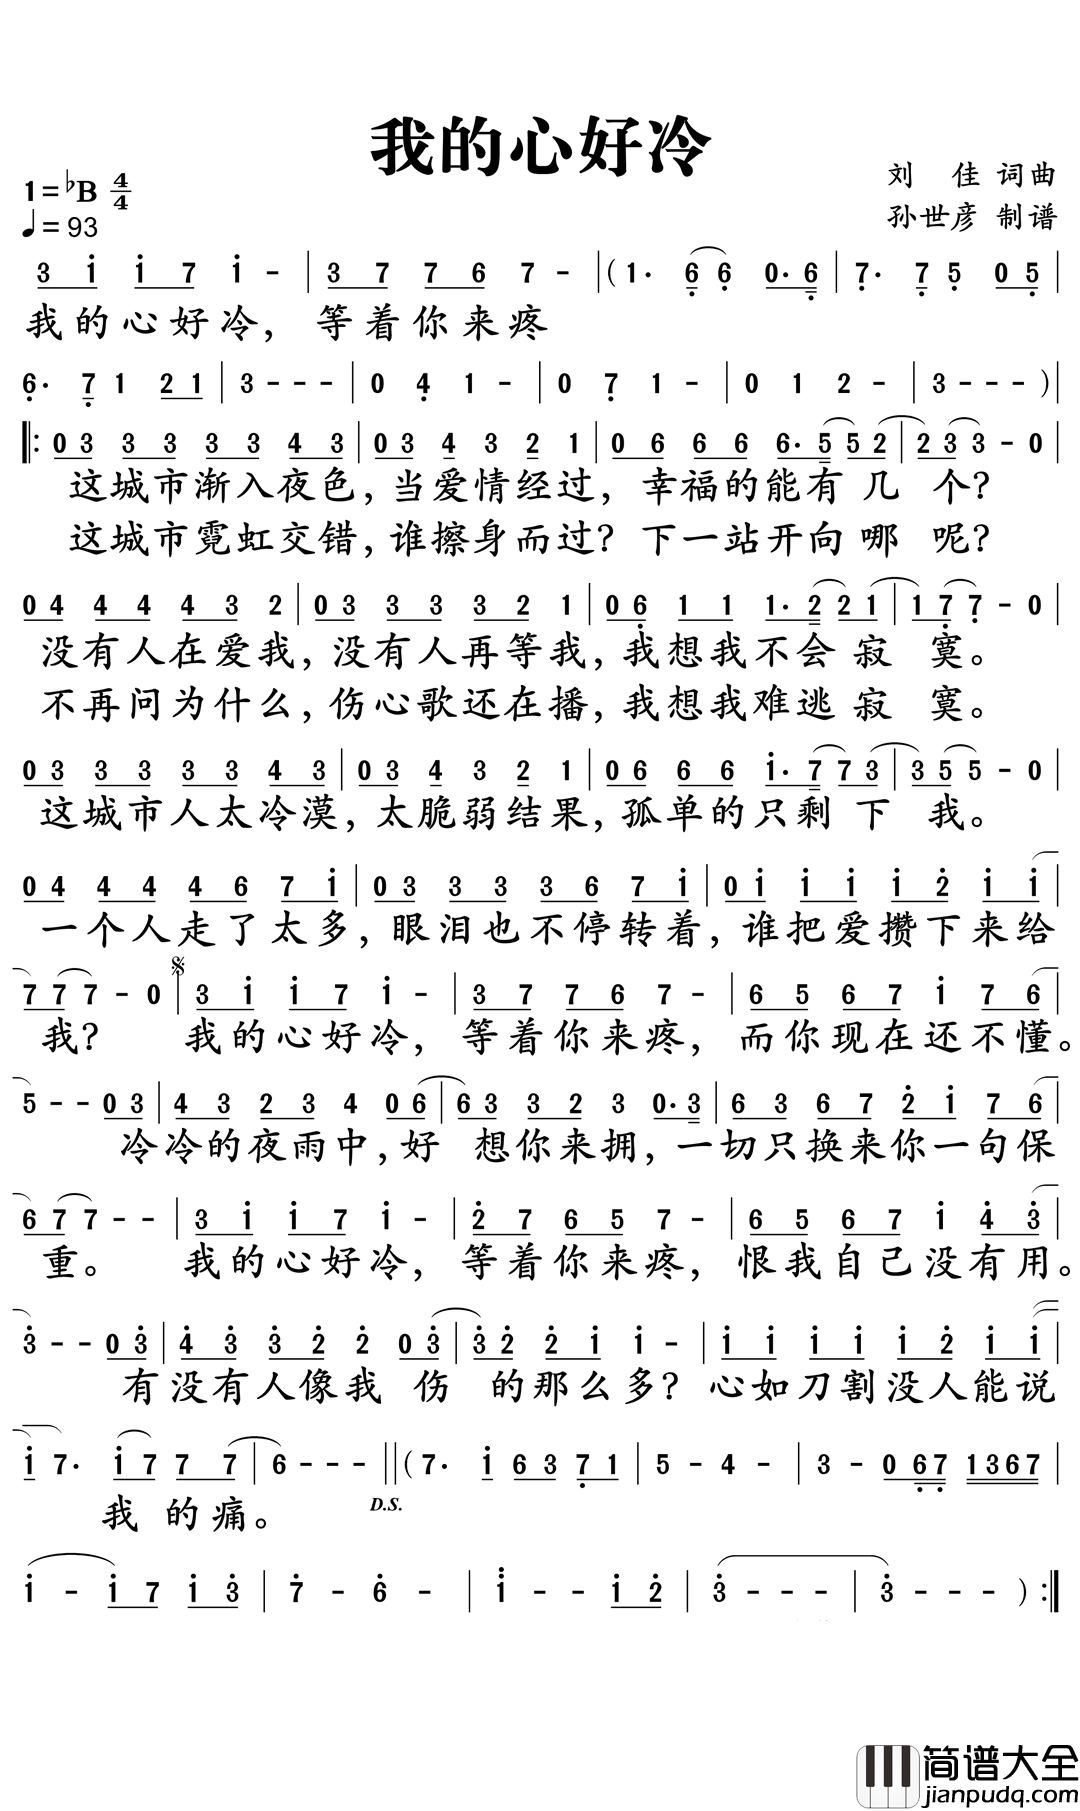 我的心好冷
刘 佳 词曲
1=♭B 4/4
孙世彦 制谱
♩=93
3 i i 7 i - | 3 7 7 6 7 - | ( 1· 6 6 0· 6 | 7· 7 5 0 5 |
我的心好冷, 等着你来疼
6· 7 1 2 1 | 3 - - - | 0 4 1 - | 0 7 1 - | 0 1 2 - | 3 - - - ) |
‖: 0 3 3 3 3 3 4 3 | 0 3 4 3 2 1 | 0 6 6 6 6· 5 5 2 | 2 3 3 - 0 |
这城市渐入夜色, 当爱情经过, 幸福的能有 几 个?
这城市霓虹交错, 谁擦身而过? 下一站开向 哪 呢?
0 4 4 4 4 3 2 | 0 3 3 3 3 2 1 | 0 6 1 1 1· 2 2 1 | 1 7 7 - 0 |
没有人在爱我, 没有人再等我, 我想我不会 寂 寞。
不再问为什么, 伤心歌还在播, 我想我难逃 寂 寞。
0 3 3 3 3 3 4 3 | 0 3 4 3 2 1 | 0 6 6 6 i· 7 7 3 | 3 5 5 - 0 |
这城市人太冷漠, 太脆弱结果, 孤单的只剩 下 我。
0 4 4 4 4 6 7 i | 0 3 3 3 3 6 7 i | 0 i i i i 2 i i |
一个人走了太多, 眼泪也不停转着, 谁把爱攒下来给
7 7 7 - 0 | 3 i i 7 i - | 3 7 7 6 7 - | 6 5 6 7 i 7 6 |
我? 我的心好冷, 等着你来疼, 而你现在还不懂。
5 - - 0 3 | 4 3 2 3 4 0 6 | 6 3 3 2 3 0· 3 | 6 3 6 7 2 i 7 6 |
冷冷的夜雨中, 好 想你来拥, 一切只换来你一句保
6 7 7 - - | 3 i i 7 i - | 2 7 6 5 7 - | 6 5 6 7 i 4 3 |
重。 我的心好冷, 等着你来疼, 恨我自己没有用。
3 - - 0 3 | 4 3 3 2 2 0 3 | 3 2 2 i i - | i i i i i 2 i i |
有没有人像我 伤 的那么多? 心如刀割没人能说
i 7· i 7 7 7 | 6 - - - ‖ ( 7· i 6 3 7 1 | 5 - 4 - | 3 - 0 6 7 1 3 6 7 |
D.S.
我 的 痛。
i - i 7 i 3 | 7 - 6 - | i - - i 2 | 3 - - - | 3 - - - ) :‖
简谱大全
jianpudq.com